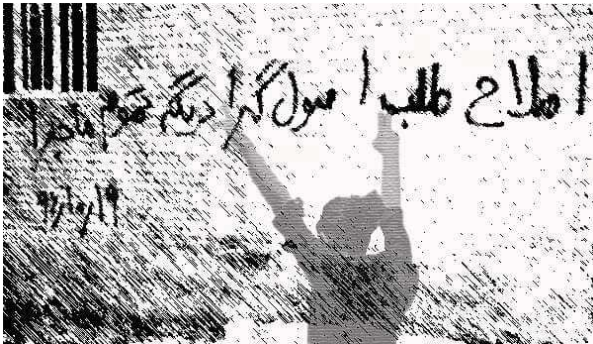 اصلاح طلب اصول گرا دیگه تموم ماجرا